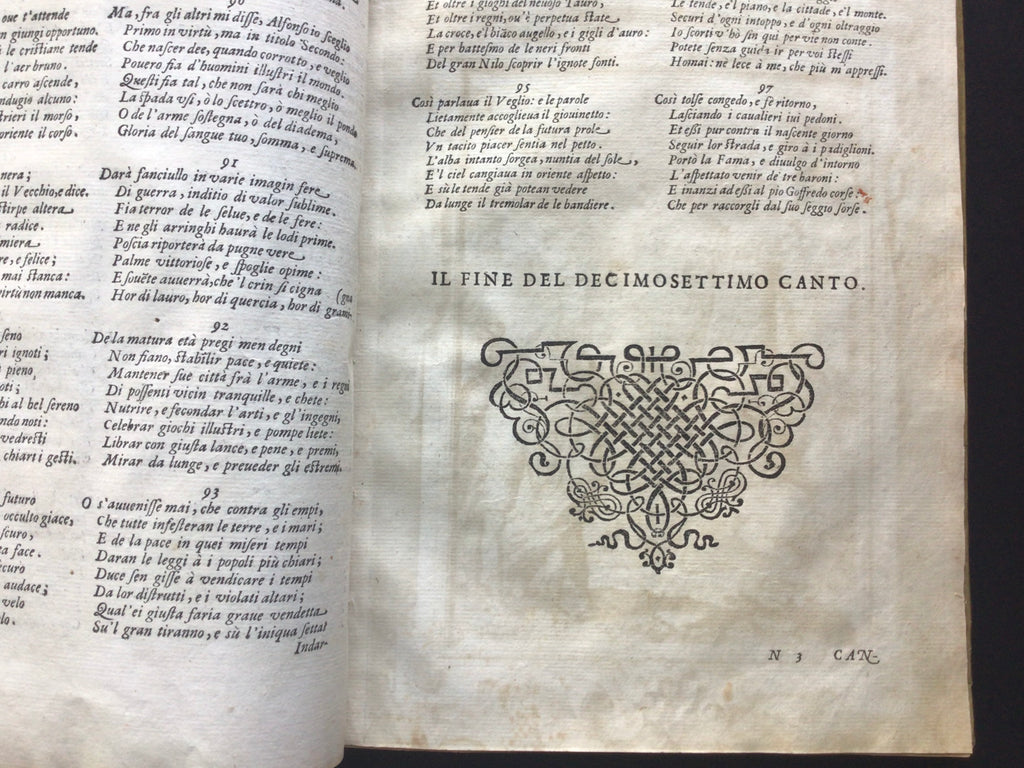 oue t'attende
n giungi opportuno.
le cristiane tende
l'aer bruno.
carro ascende,
ndugio alcuno:
rieri il morso,
oriente il corso.
nera;
il Vecchio, e dice.
stirpe altera
radice.
miera
re, e felice;
mai stanca:
virtù non manca.
seno
ri ignoti;
pieno,
oti;
hi al bel sereno
ndo noti:
vedresti
chiari i gesti.
futuro
occulto giace,
scuro,
ta face.
icuro
audace;
velo
lo.
90
Ma, fra gli altri mi disse, Alfonso io sceglio
Primo in virtù, ma in titolo Secondo:
Che nascer dee, quando corrotto, e veglio
Pouero fia d'huomini illustri il mondo.
Questi fia tal, che non sarà chi meglio
La spada vsi, ò lo scettro, ò meglio il pondo
O de l'arme sostegna, ò del diadema,
Gloria del sangue tuo, somma, e suprema.
91
Darà fanciullo in varie imagin fere
Di guerra, inditio di valor sublime.
Fia terror de le selue, e de le fere:
E ne gli arringhi haurà le lodi prime.
Poscia riporterà da pugne vere
Palme vittoriose, e spoglie opime:
E souẽte auuerrà, che'l crin si cigna
Hor di lauro, hor di quercia, hor di grami- (gna
92
De la matura età pregi men degni
Non fiano, stabilir pace, e quiete:
Mantener sue città frà l'arme, e i regni
Di possenti vicin tranquille, e chete:
Nutrire, e fecondar l'arti, e gl'ingegni,
Celebrar giochi illustri, e pompe liete:
Librar con giusta lance, e pene, e premi,
Mirar da lunge, e preueder gli estremi.
93
O s'auuenisse mai, che contra gli empi,
Che tutte infesteran le terre, e i mari;
E de la pace in quei miseri tempi
Daran le leggi à i popoli più chiari;
Duce sen gisse à vendicare i tempi
Da lor distrutti, e i violati altari;
Qual'ei giusta faria graue vendetta
Su'l gran tiranno, e sù l'iniqua setta!
Indar-
Et oltre i gioghi del neuoso Tauro,
Et oltre i regni, ou'è perpetua state
La croce, e'l biãco augello, e i gigli d'auro:
E per battesmo de le neri fronti
Del gran Nilo scoprir l'ignote fonti.
95
Così parlaua il Veglio: e le parole
Lietamente accoglieua il giouinetto:
Che del pensier de la futura prole
Vn tacito piacer sentia nel petto.
L'alba intanto sorgea, nuntia del sole,
E'l ciel cangiaua in oriente aspetto:
E sù le tende già potean vedere
Da lunge il tremolar de le bandiere.
Le tende, e'l piano, e la cittade, e'l monte.
Securi d'ogni intoppo, e d'ogni oltraggio
Io scorti v'hò sin qui per vie non conte.
Potete senza guida ir per voi stessi
Homai: ne lece à me, che più m'appressi.
97
Così tolse congedo, e fè ritorno,
Lasciando i caualieri iui pedoni.
Et essi pur contra il nascente giorno
Seguir lor strada, e giro à i padiglioni.
Portò la Fama, e diuulgo d'intorno
L'aspettato venir de' tre baroni:
E inanzi ad essi al pio Goffredo corse:
Che per raccorgli dal suo seggio sorse.
IL FINE DEL DECIMOSETTIMO CANTO.
N 3 CAN-